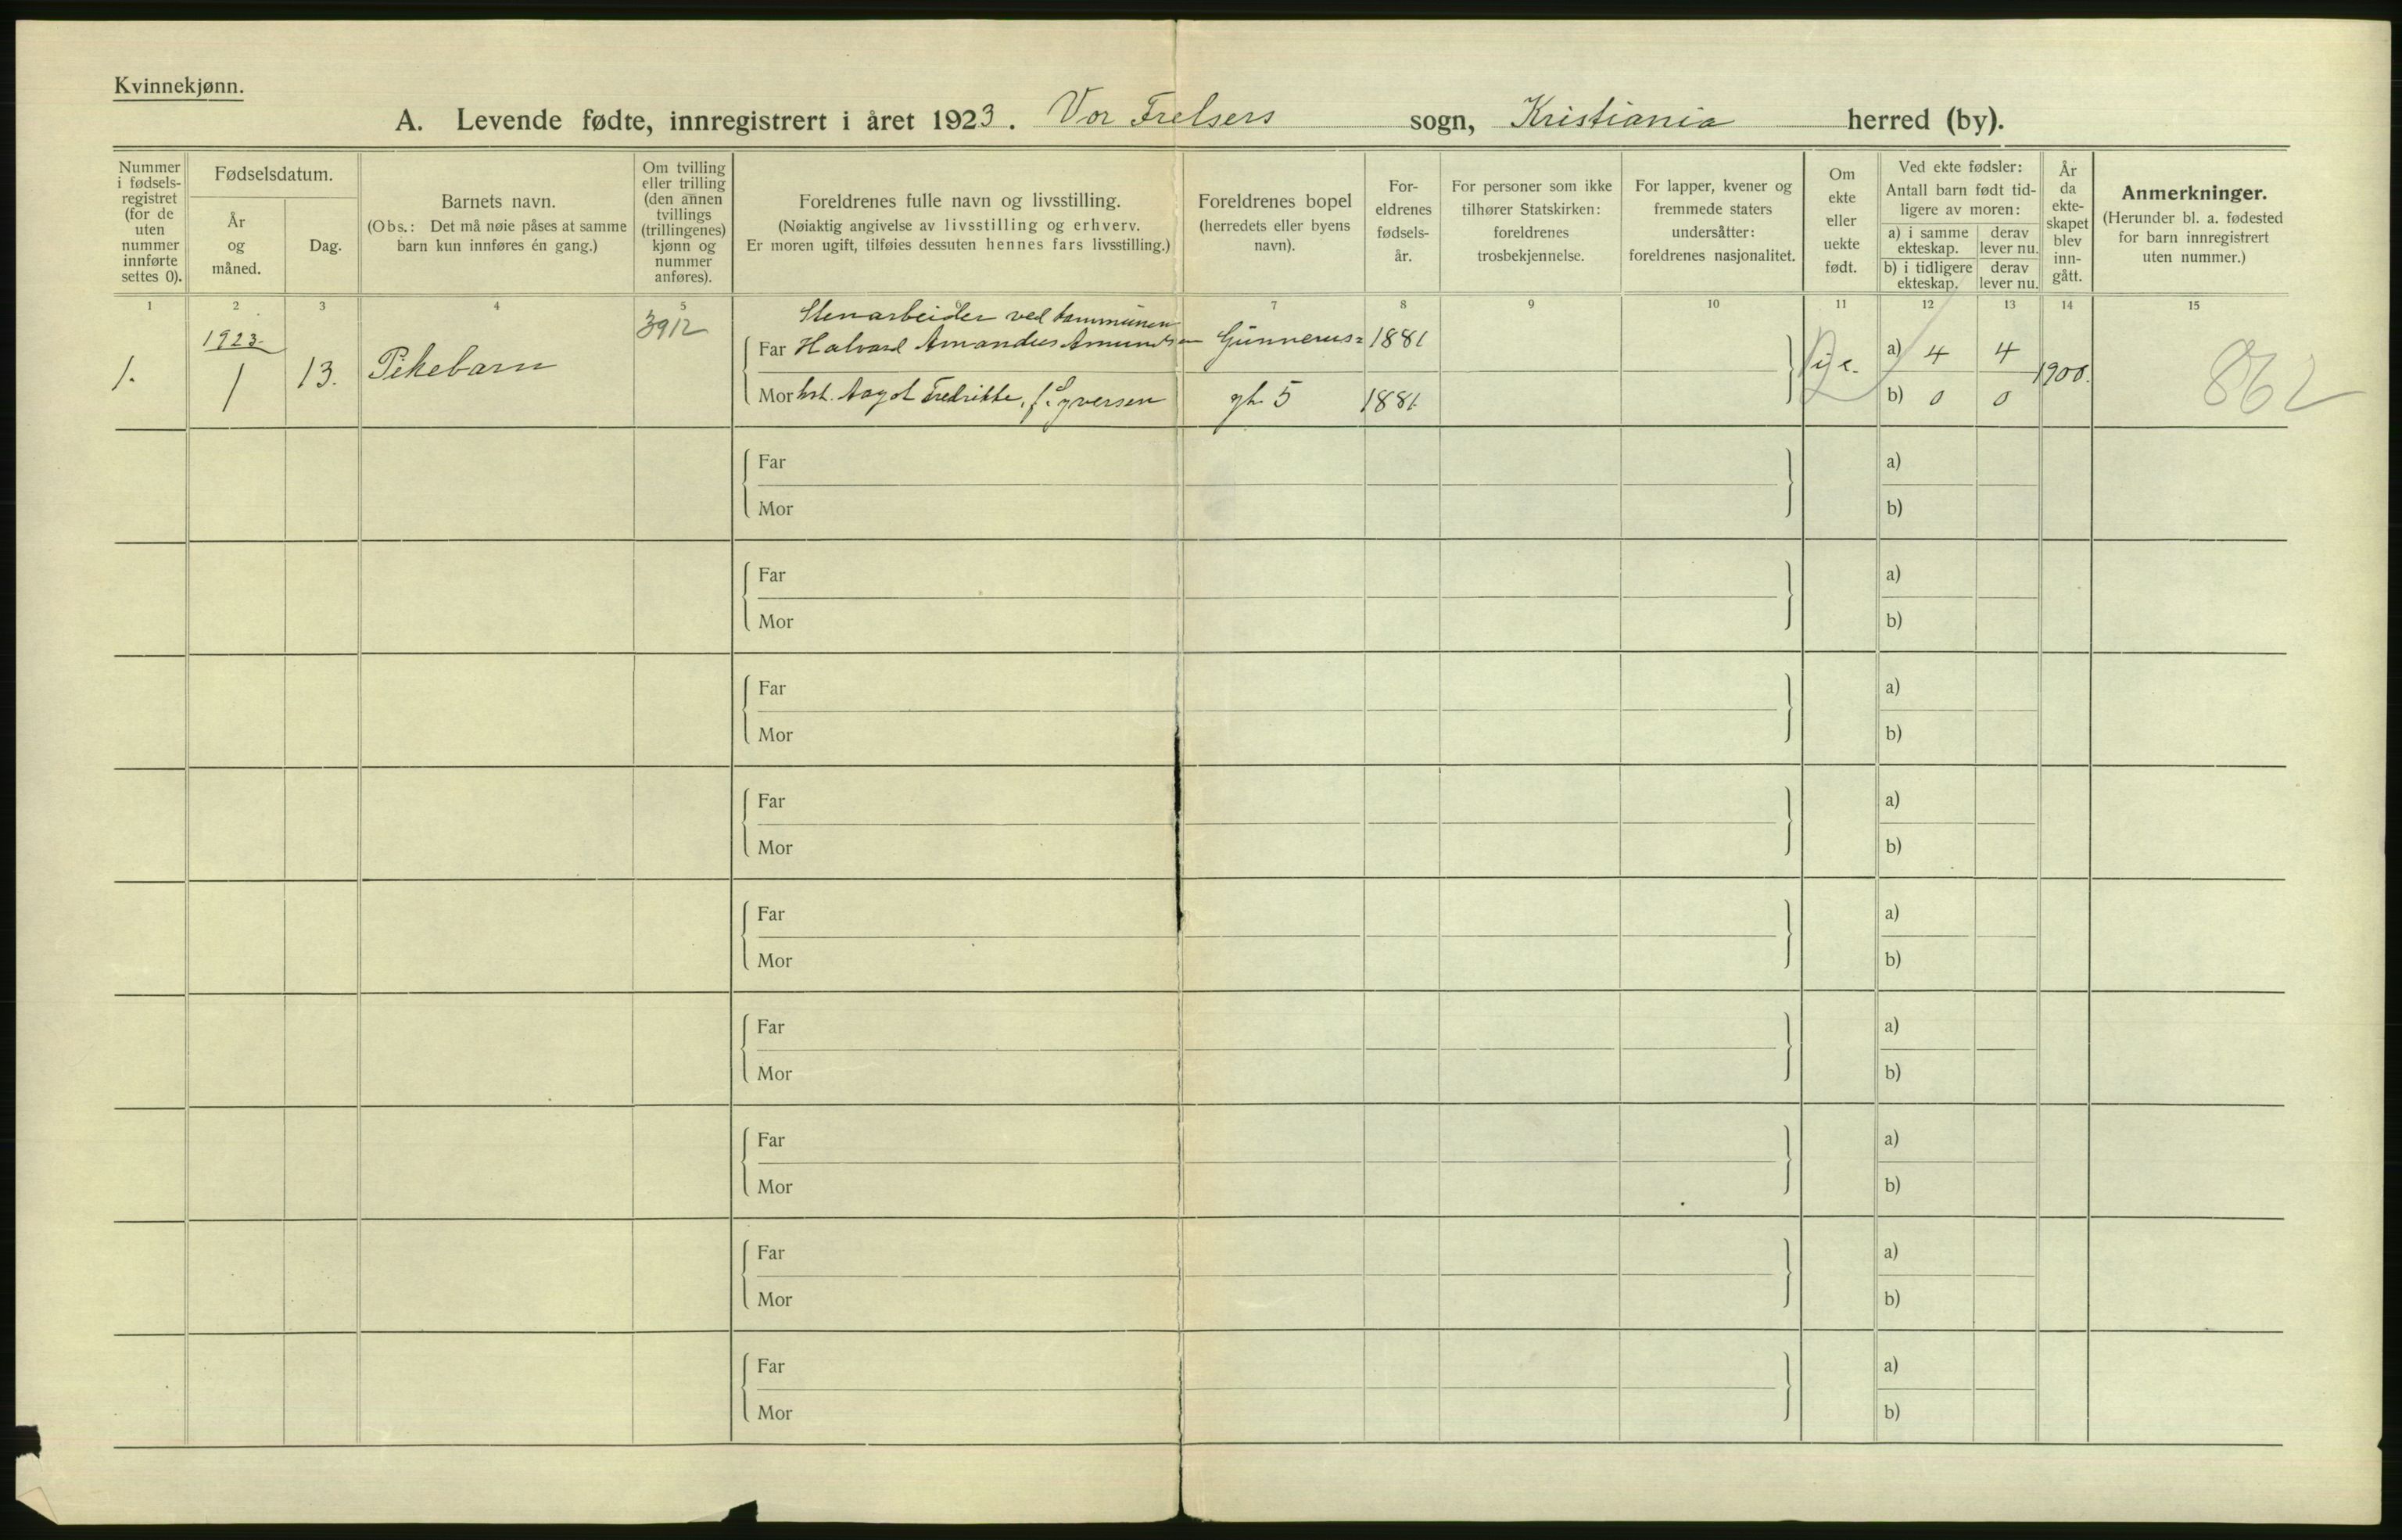 Kvinnekjønn.
A. Levende fødte, innregistrert i året 1923. Vor Frelsers sogn, Kristiania herred (by).
Nummer
i fødsels-
registret
(for de
uten
nummer
innførte
settes 0).
Fødselsdatum.
År
og
måned.
Dag.
Barnets navn.
(Obs.: Det må nøie påses at samme
barn kun innføres én gang.)
Om tvilling
eller trilling
(den annen
tvillings
(trillingenes)
kjønn og
nummer
anføres).
Foreldrenes fulle navn og livsstilling.
(Nøiaktig angivelse av livsstilling og erhverv.
Er moren ugift, tilføies dessuten hennes fars livsstilling.)
Foreldrenes bopel
(herredets eller byens
navn).
For-
eldrenes
fødsels-
år.
For personer som ikke
tilhører Statskirken:
foreldrenes
trosbekjennelse.
For lapper, kvener og
fremmede staters
undersåtter:
foreldrenes nasjonalitet.
Om
ekte
eller
uekte
født.
Ved ekte fødsler:
Antall barn født tid-
ligere av moren:
a) i samme
ekteskap.
derav
lever nu.
b) i tidligere
ekteskap.
derav
lever nu.
År
da
ekte-
skapet
blev
inn-
gått.
Anmerkninger.
(Herunder bl. a. fødested
for barn innregistrert
uten nummer.)
1 2 3 4 5 6 7 8 9 10 11 12 13 14 15
1. 1923 1 13. Pikebarn 3912
Stenarbeider ved kommunen
Far Halvard Amandus Amundsen Gunnerus= 1881
a) 4 4
1900.
862
Mor hst. Aagot Fredrikke, f. Syversen gt. 5 1881
b) 0 0
Far a)
Mor b)
Far a)
Mor b)
Far a)
Mor b)
Far a)
Mor b)
Far a)
Mor b)
Far a)
Mor b)
Far a)
Mor b)
Far a)
Mor b)
Far a)
Mor b)